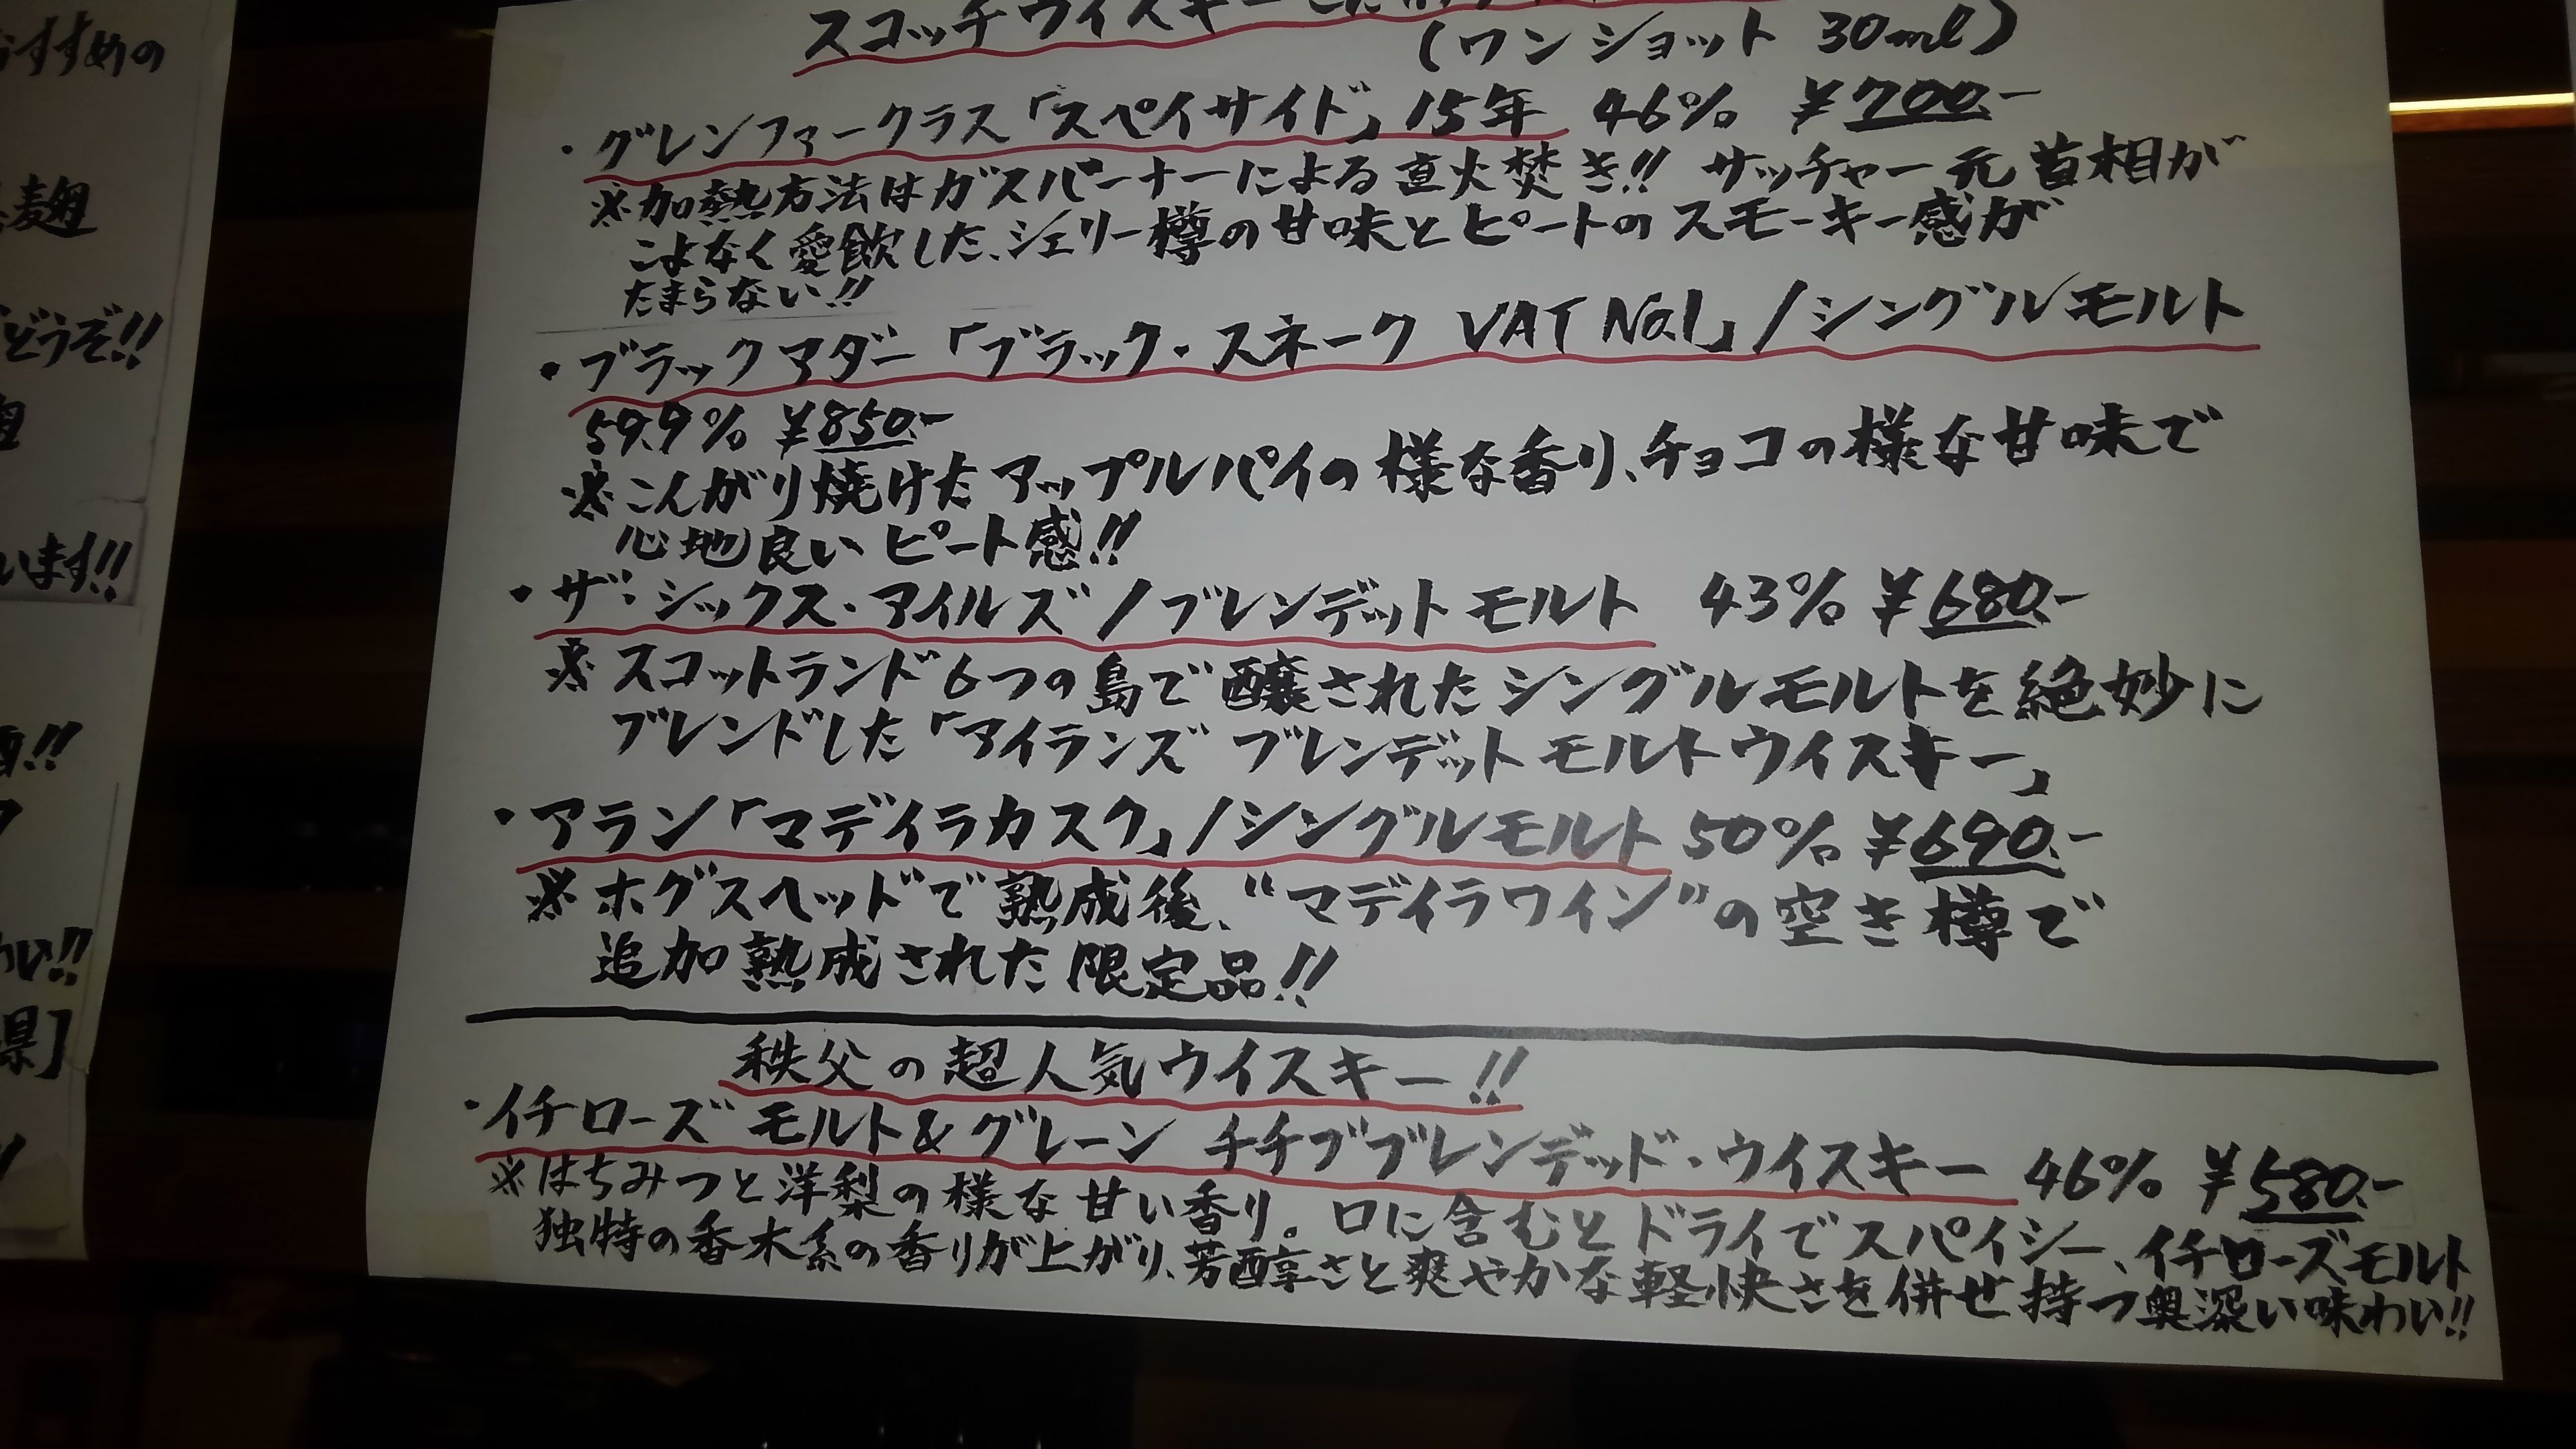 スコッチウイスキー
(ワンショット 30ml)
・グレンファークラス「スペイサイド」15年 46% ¥700.-
※加熱方法はガスバーナーによる直火焚き!! サッチャー元首相が
こよなく愛飲した、シェリー樽の甘味とピートのスモーキー感が
たまらない!!
・ブラックマダー「ブラック・スネーク VAT No.1」/シングルモルト
59.9% ¥850.-
※こんがり焼けたアップルパイの様な香り、チョコの様な甘味で
心地良いピート感!!
・ザ・シックス・アイルズ/ブレンデットモルト 43% ¥680.-
※スコットランド6つの島で醸されたシングルモルトを絶妙に
ブレンドした「アイランズ ブレンデットモルトウイスキー」
・アラン「マデイラカスク」/シングルモルト 50% ¥690.-
※ホグスヘッドで熟成後、“マデイラワイン”の空き樽で
追加熟成された限定品!!
秩父の超人気ウイスキー!!
・イチローズ モルト&グレーン チチブブレンデッド・ウイスキー 46% ¥580.-
※はちみつと洋梨の様な甘い香り。口に含むとドライでスパイシー、イチローズモルト
独特の香木系の香りが上がり、芳醇さと爽やかな軽快さを併せ持つ奥深い味わい!!
おすすめの
麹
どうぞ!!
います!!
酒!!
わい!!
県]